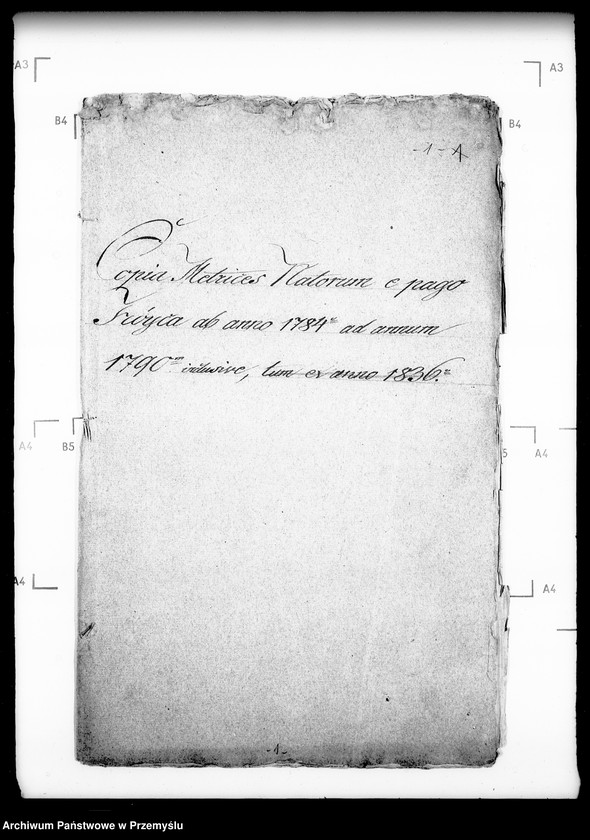 A3
A3
B4
B4
- 1 - A
Copia Metrices Natorum e pago
ab anno 1784° ad annum
1790um inclusive, tum ex anno 1836.°
A4
B5
5
A4
A4
A4
-1-
Archiwum Państwowe w Przemyślu